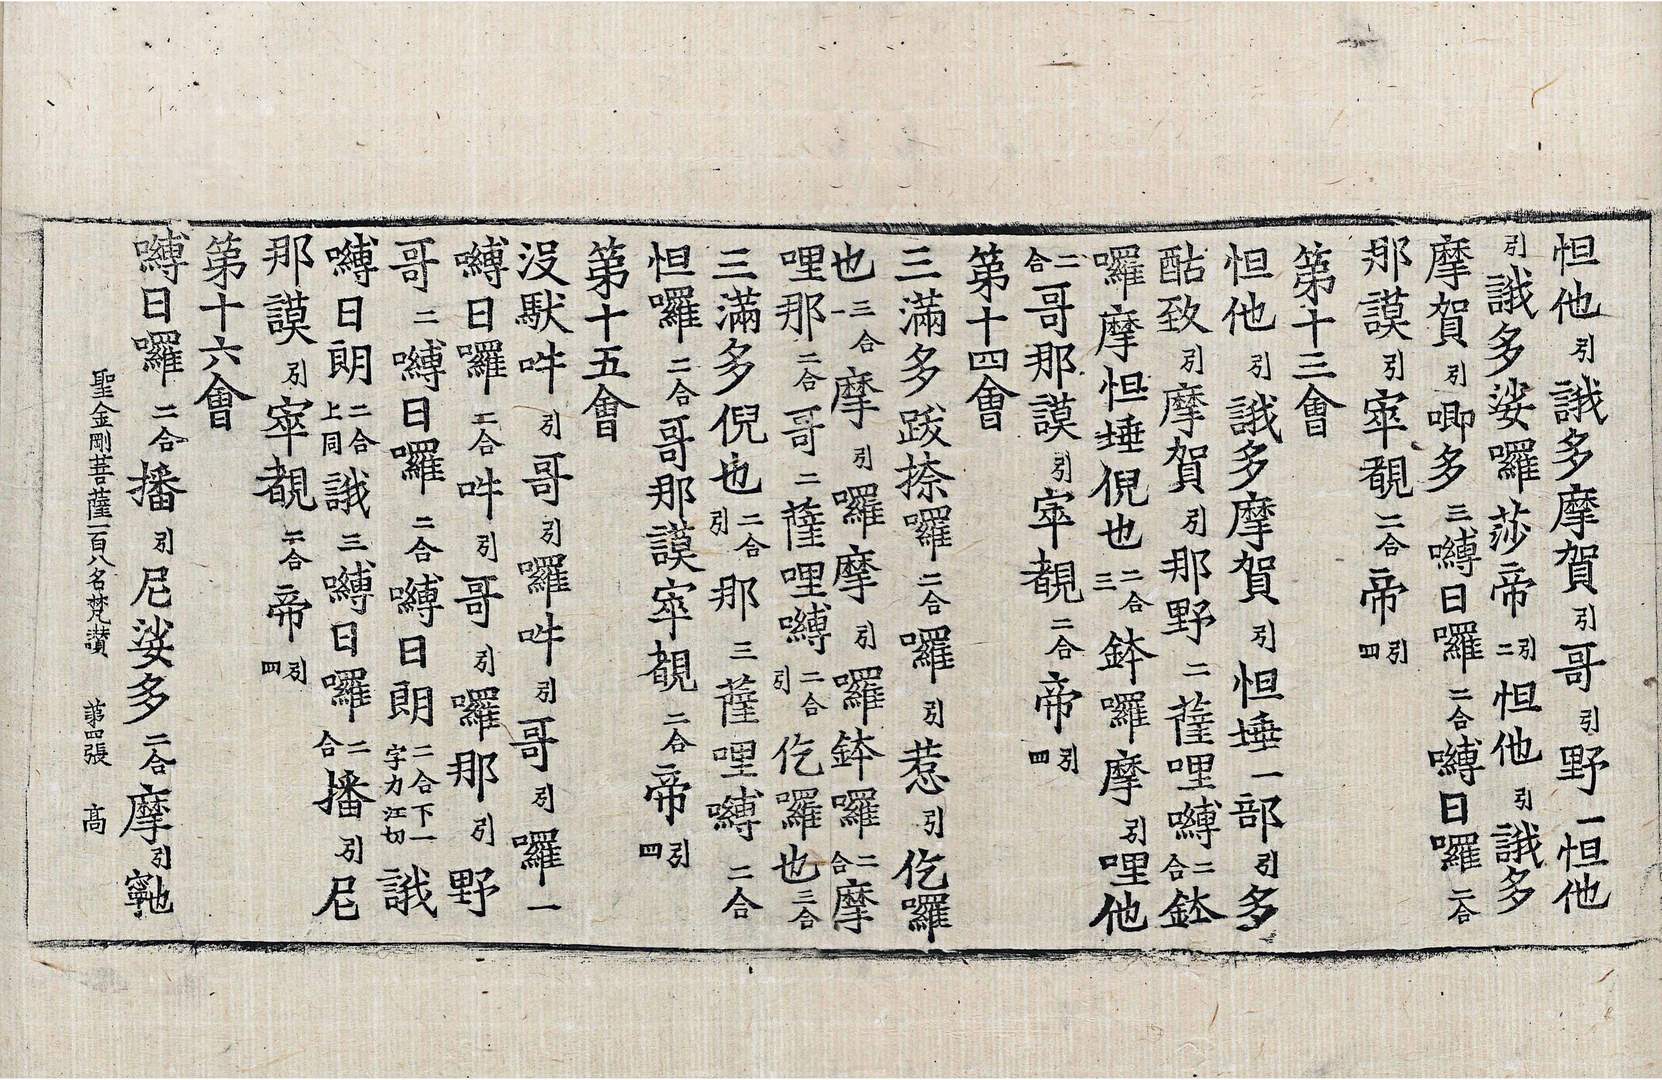 怛他引誐多摩賀引哥引野一怛他
引誐多娑囉莎帝引二怛他引誐多
摩賀引唧多三嚩日囉二合嚩日囉二合
那謨引窣覩二合帝引四
第十三會
怛他引誐多摩賀引怛埵一部引多
酤致引摩賀引那野二薩哩嚩二合鉢
囉摩怛埵倪也二合三鉢囉摩引哩他
二合哥那謨引窣覩二合帝引四
第十四會
三滿多跋捺囉二合囉引惹引仡囉
也三合一摩引囉摩引囉鉢囉二合摩
哩那二合哥二薩哩嚩二合引仡囉也三合
三滿多倪也二合引那三薩哩嚩二合
怛囉二合哥那謨窣覩二合帝引四
第十五會
沒馱吽引哥引囉吽引哥引囉一
嚩日囉二合吽引哥引囉那引野
哥二嚩日囉二合嚩日朗二合下一字力江切誐
嚩日朗二合上同誐三嚩日囉二合播引尼
那謨引窣覩二合帝引四
第十六會
嚩日囉二合播引尼娑多二合摩引
聖金剛菩薩一百八名梵讚 第四張 高